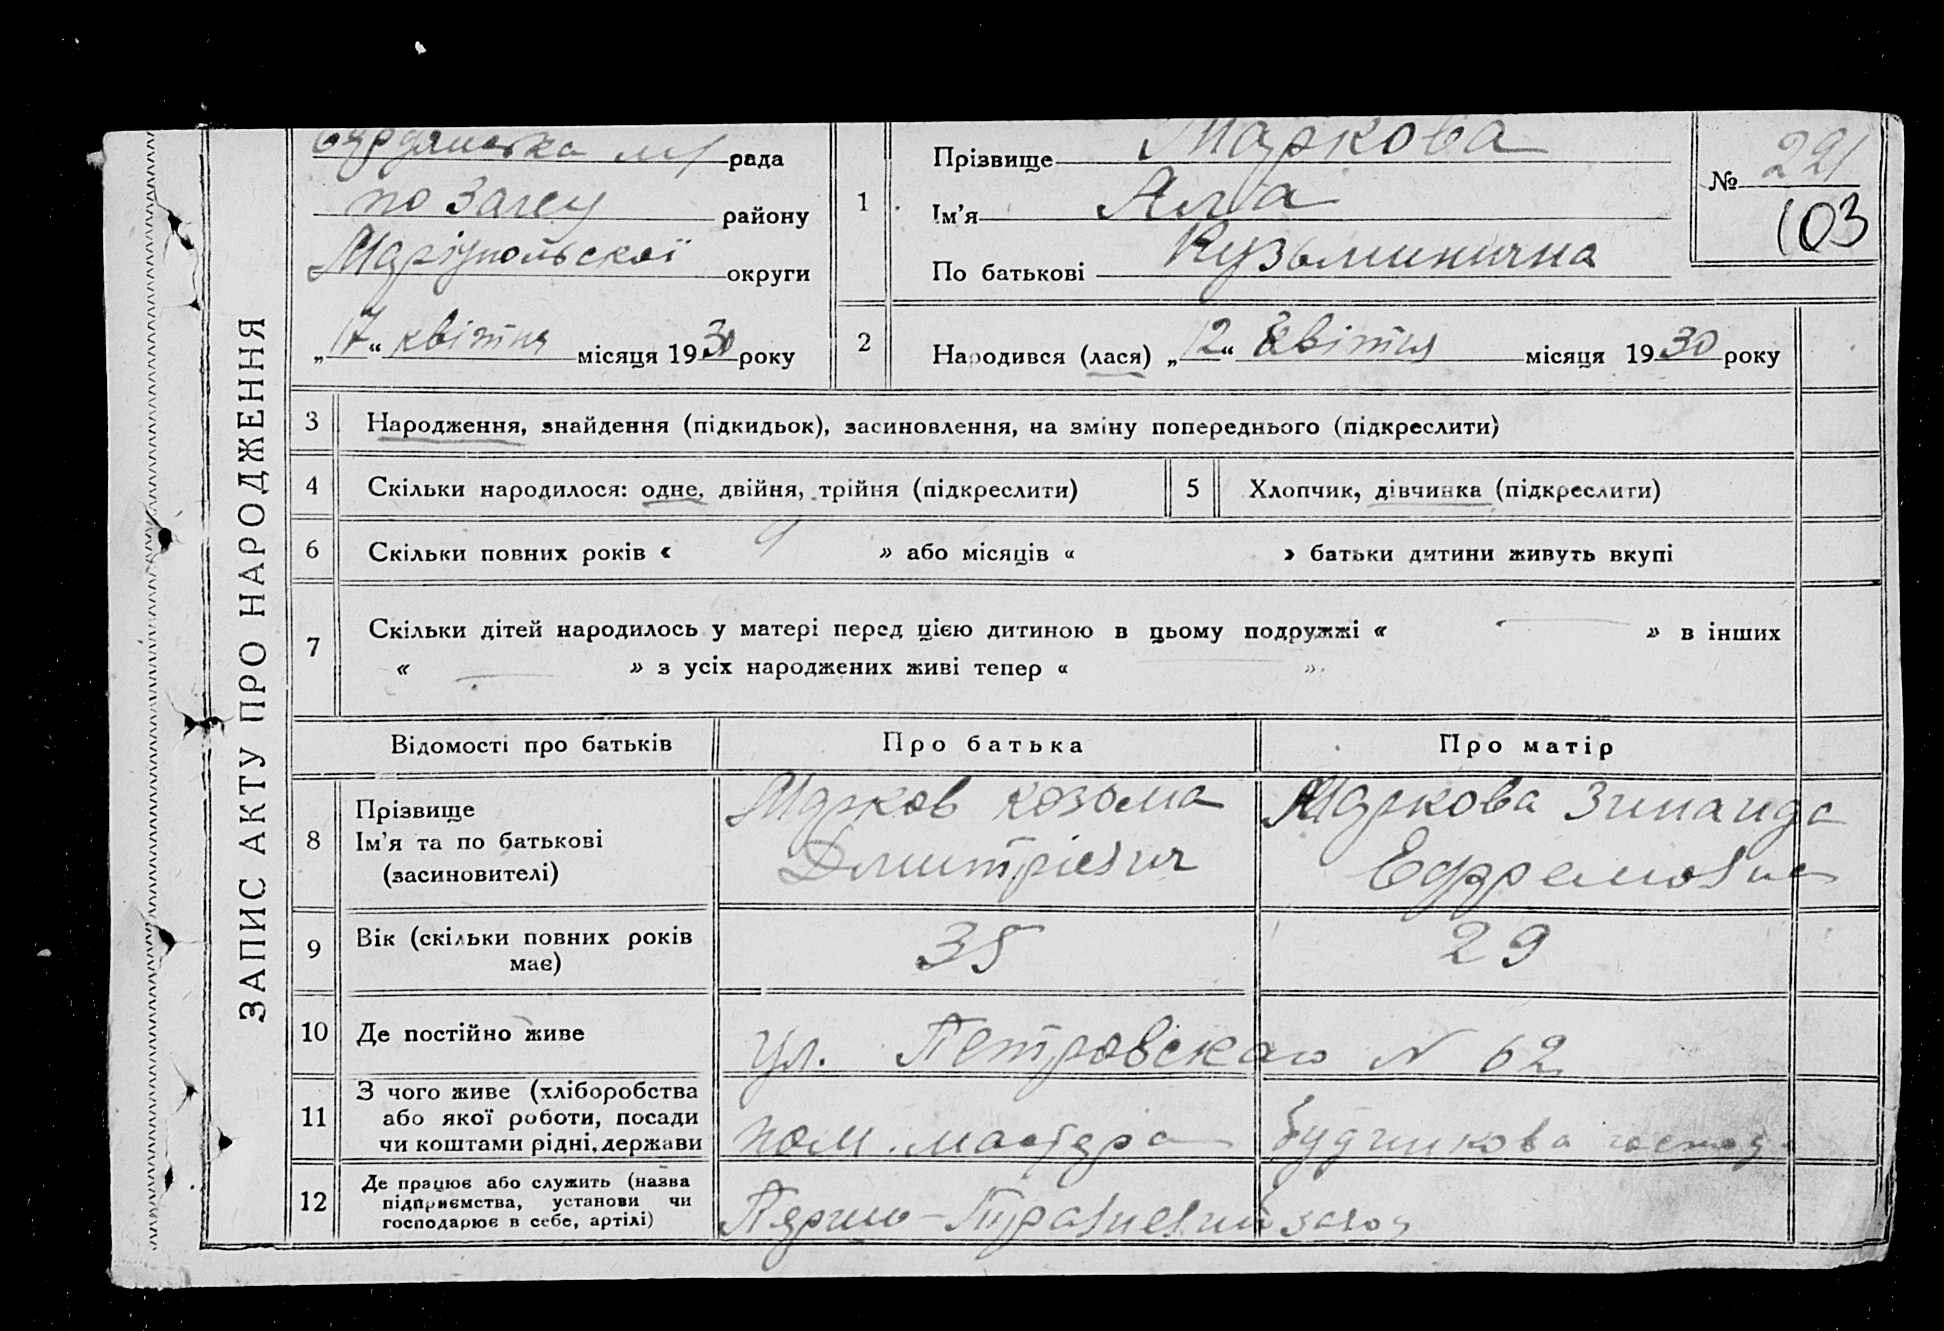 ЗАПИС АКТУ ПРО НАРОДЖЕННЯ
Бердянська м/ рада
по Загсу району
Маріупольскої округи
„17“ квітня місяця 1930 року
1
Прізвище Маркова
Ім'я Алла
По батькові Кузьминична
№ 221
103
2
Народився (лася) „12“ квітня місяця 1930 року
3 Народження, знайдення (підкидьок), засиновлення, на зміну попереднього (підкреслити)
4 Скільки народилося: одне, двійня, трійня (підкреслити)
5 Хлопчик, дівчинка (підкреслити)
6 Скільки повних років « 9 » або місяців « » батьки дитини живуть вкупі
7 Скільки дітей народилось у матері перед цією дитиною в цьому подружжі « — » в інших
« — » з усіх народжених живі тепер « — »
Відомості про батьків Про батька Про матір
8 Прізвище
Ім'я та по батькові
(засиновителі)
Марков Козьма
Дмитріевич
Маркова Зинаида
Ефремовна
9 Вік (скільки повних років
має)
35 29
10 Де постійно живе ул. Петровскаго N 62
11 З чого живе (хліборобства
або якої роботи, посади
чи коштами рідні, держави
пом. мастера
12 Де працює або служить (назва
підприємства, установи чи
господарює в себе, артілі)
Первше-Травневий завод